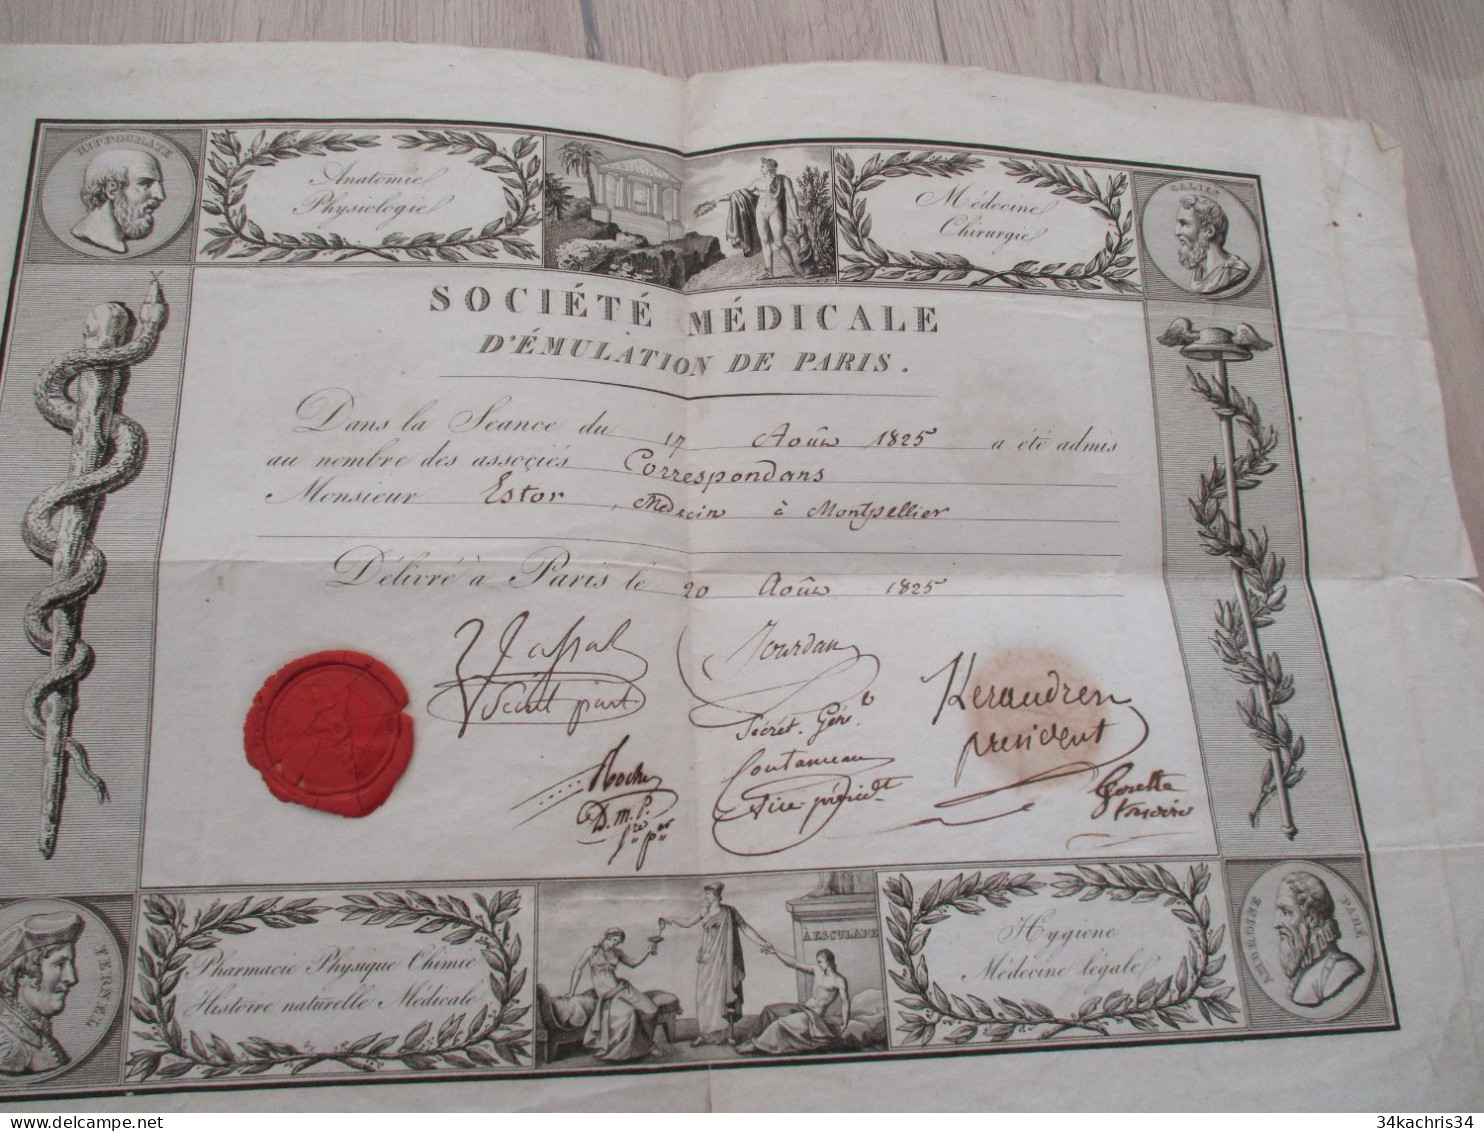 HIPPOCRATE
Anatomie
Physiologie
Médecine
Chirurgie
GALIEN
SOCIÉTÉ MÉDICALE
D'ÉMULATION DE PARIS.
Dans la Séance du 17 Août 1825 a été admis
au nombre des associés Correspondans
Monsieur Estor, Medecin à Montpellier
Délivré à Paris le 20 Août 1825
Jourdan
Secrét. Génl.
Keraudren
president
Coutanceau
Vice président
Roche
D. m. P.
FERNEL
Pharmacie Physique Chimie
Histoire naturelle Médicale
A ESCULAPE
Hygiene
Médecine légale
AMBROISE PARÉ
34kachris34